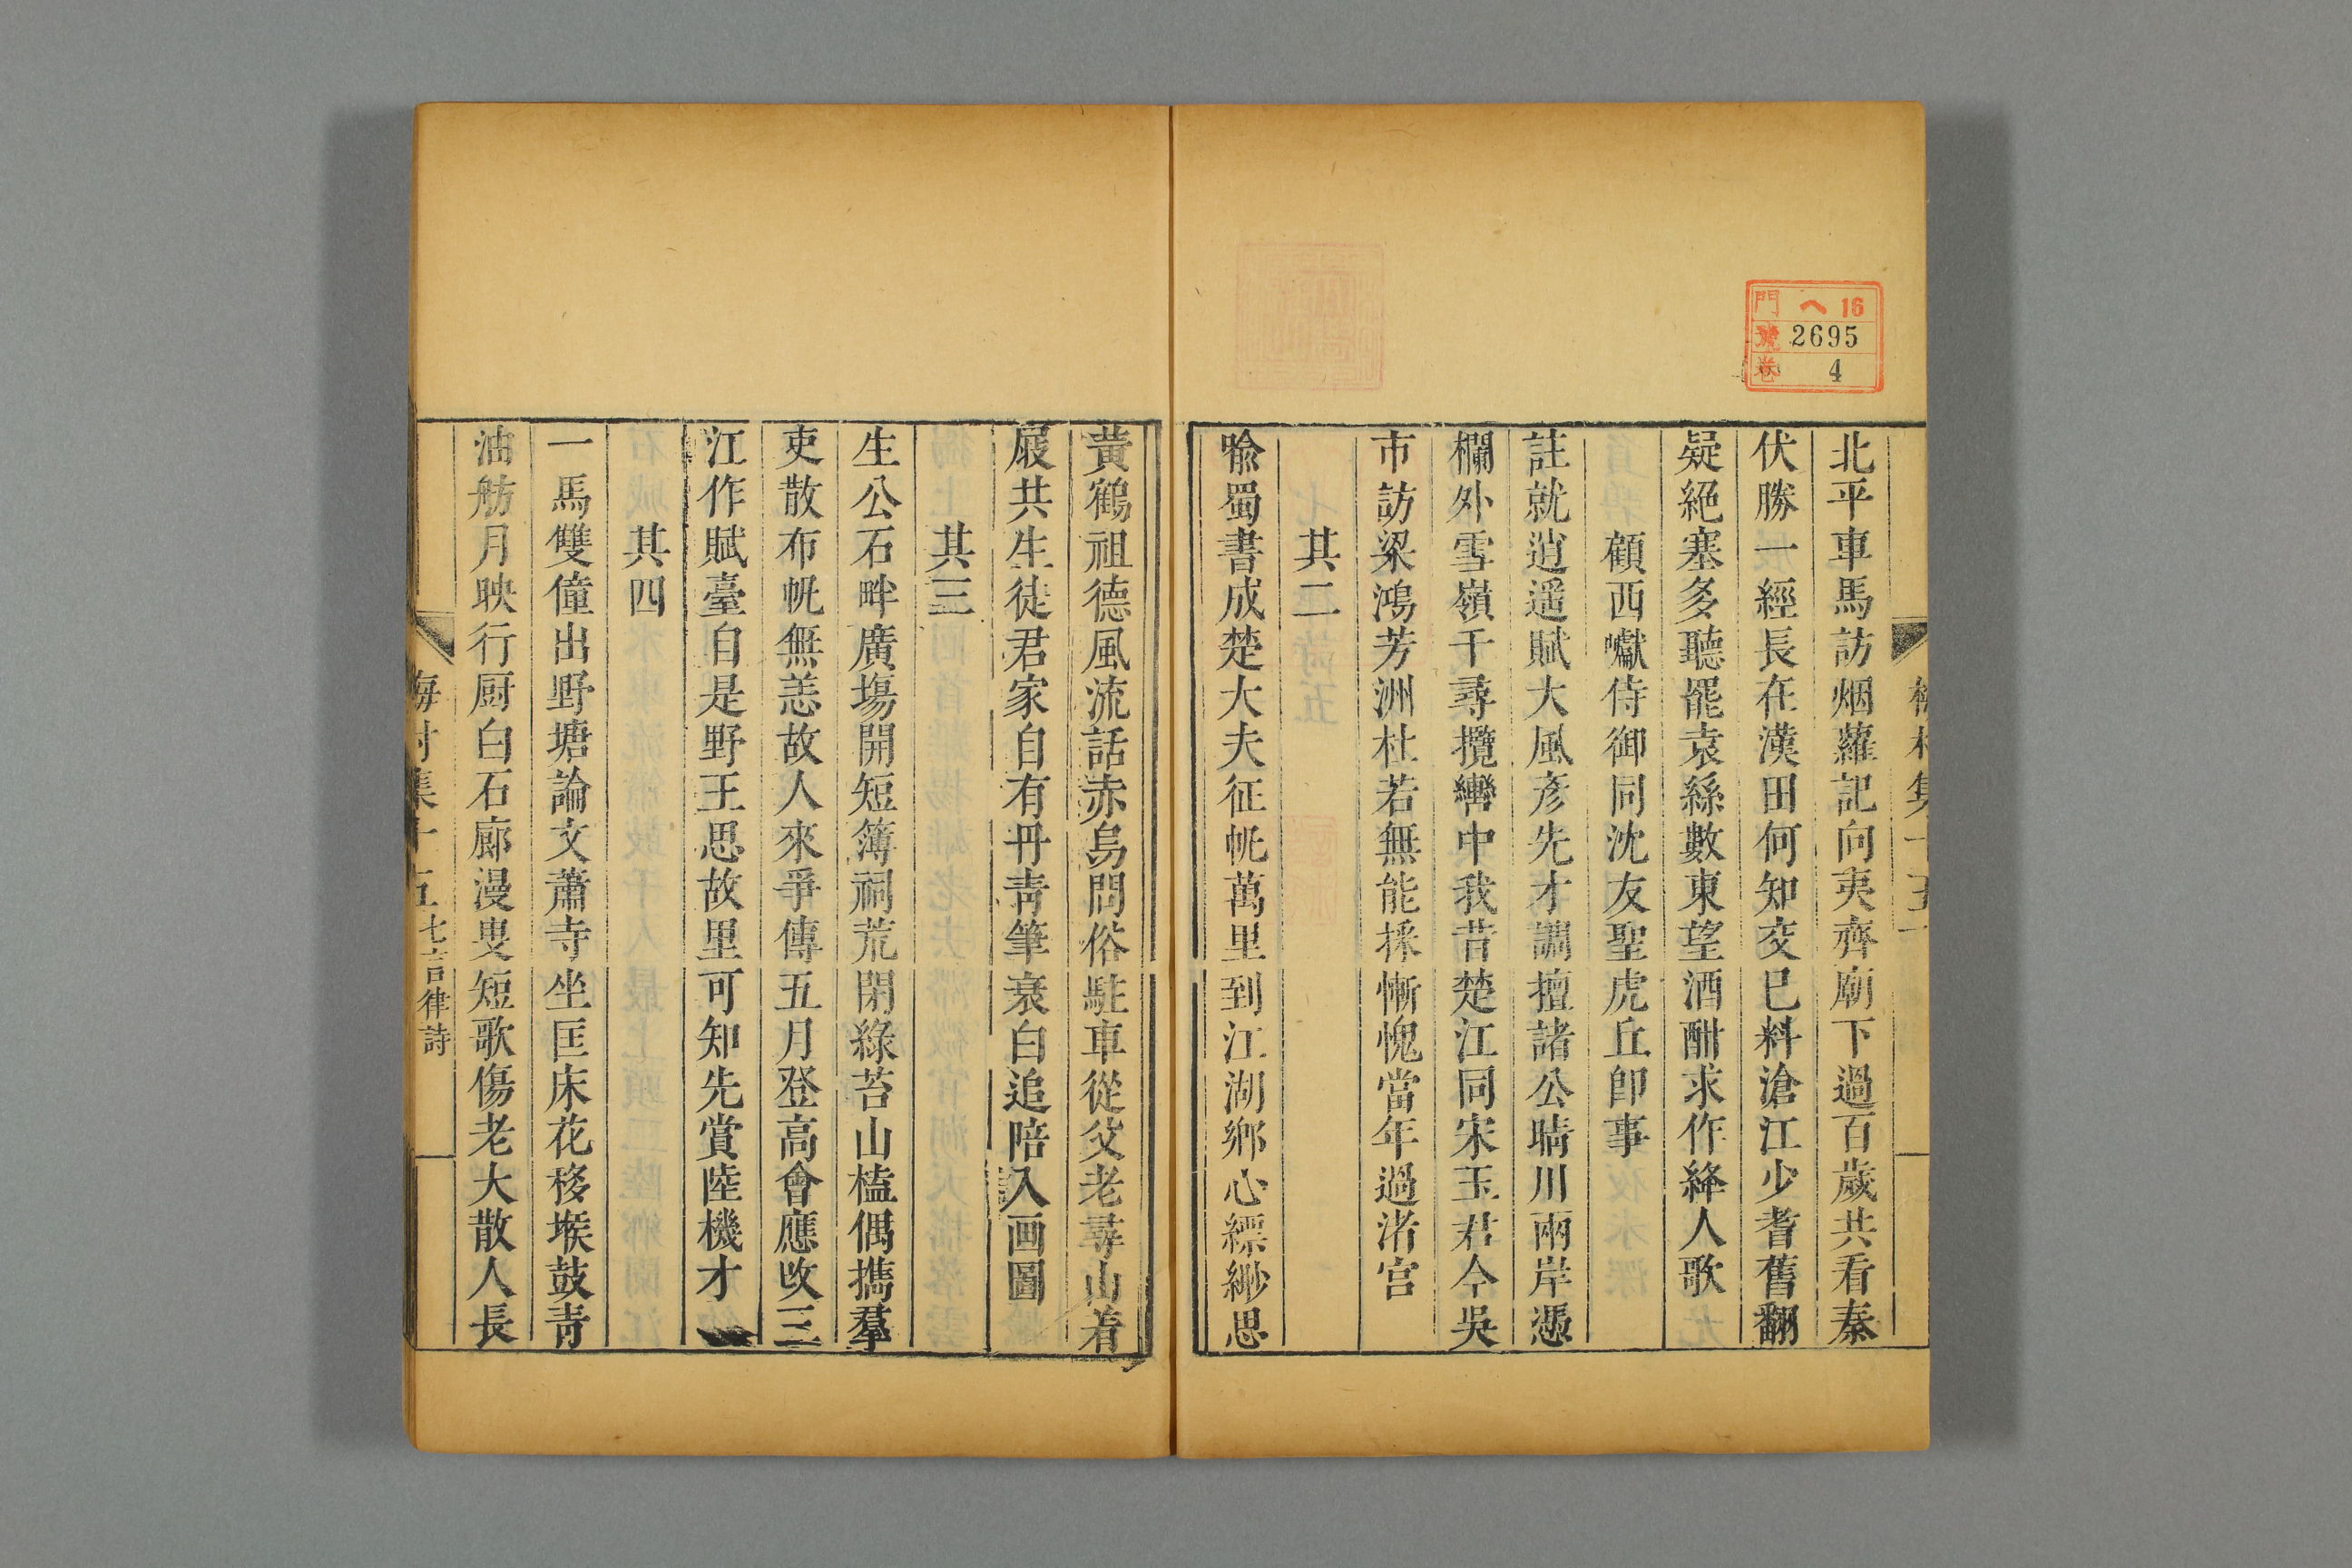 門 ヘ16
號 2695
卷 4
北平車馬訪烟蘿記向夷齊廟下過百歲共看秦
伏勝一經長在漢田何知交巳料滄江少耆舊翻
疑絕塞多聽罷袁絲數東望酒酣求作絳人歌
顧西巘侍御同沈友聖虎丘卽事
註就逍遥賦大風彥先才調擅諸公晴川兩岸憑
欄外雪嶺千尋攬轡中我昔楚江同宋玉君今吳
市訪梁鴻芳洲杜若無能採慚愧當年過渚宮
其二
喩蜀書成楚大夫征帆萬里到江湖鄉心縹緲思
黃鶴祖德風流話赤烏問俗駐車從父老尋山着
屐共生徒君家自有丹靑筆衰白追陪入画圖
其三
生公石畔廣塲開短簿祠荒閉綠苔山榼偶攜羣
吏散布帆無恙故人來爭傳五月登高會應改三
江作賦臺自是野王思故里可知先賞陸機才
其四
一馬雙僮出野塘論文蕭寺坐匡床花移堠鼓靑
油舫月映行厨白石廊漫叟短歌傷老大散人長
梅村集十五 七言律詩